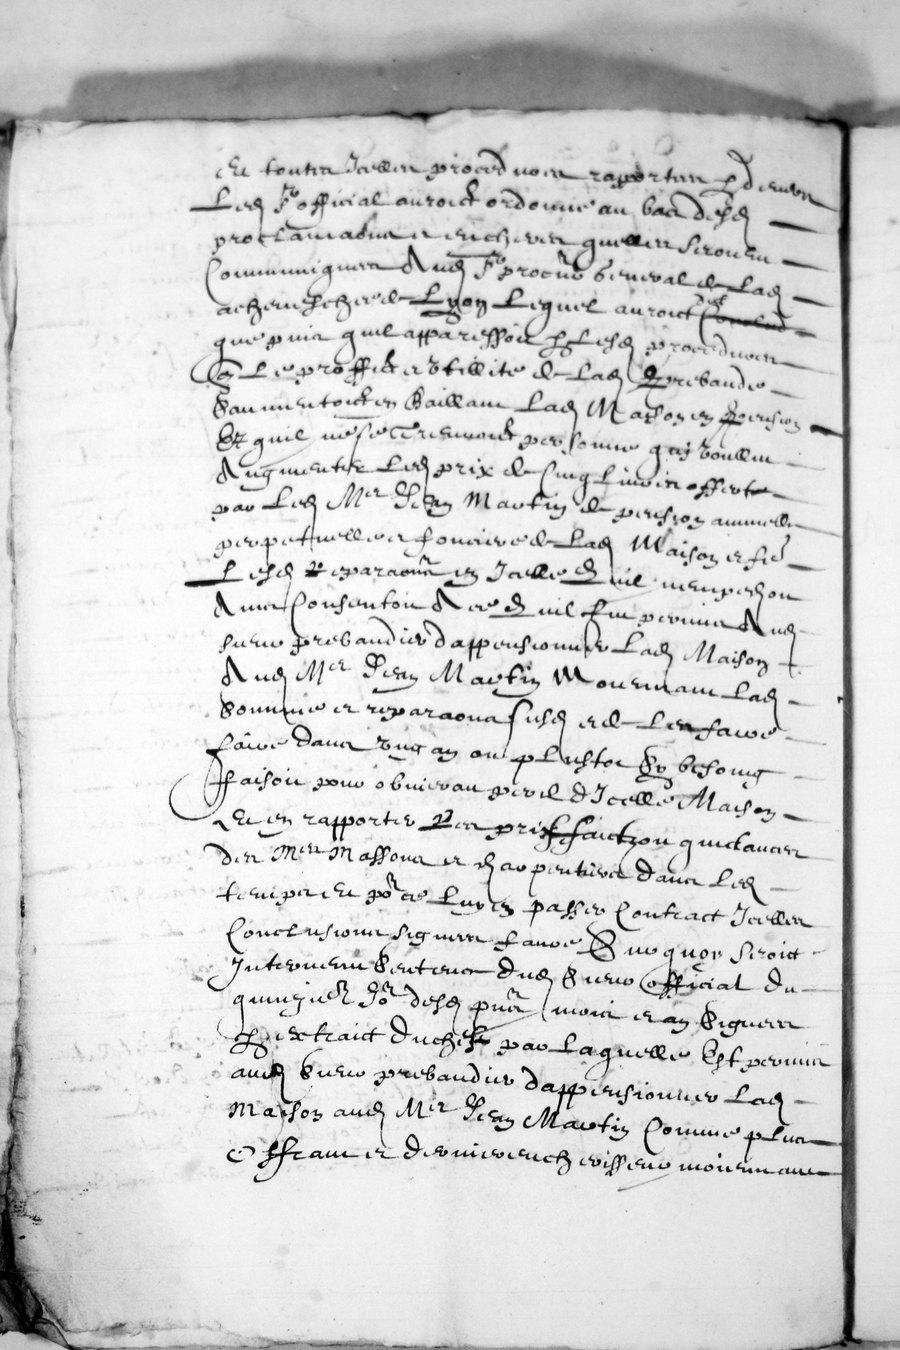 Et toutes Icelles procedures raportees p devers
Led Sr official auroict ordonné au bas desd
proclamaons et encheres quelles seroient
Communiquees Aud Sr procur General de Lad
archevesche de Lyon Lequel auroict dict
que puis quil apparessoit p Lesd procedures
q Le proffict et utillite de Lad prebande
Baillant Lad Maison en pension
Et quil ne se treuvoict personne qui voullut
Augmenter Led prix de Cinq Livres offerte
par Led Mer Jean Martin de pension annuelle
perpetuelle et fonciere de Lad Maison et fe
Lesd reparaons en Icelle d
Ains Consentoit A ce q uil fut permis Aud
sieur prebandier dappensionner Lad Maison
Aud Mer Jean Martin Moiennant Lad
Somme et reparaons susd et de Les faire
faire dans ung an ou plustot Sy besoing
faisoit pour obvier au peril d Icelle Maison
Et en rapporter Les prix faictz ou quictances
des Mes Massons et Charpentiers dans Led
temps et pr ce Luy en passer Contract Icelles
Conclusions signees faure Sur quoy seroict
Intervenu Sentence dud Sieur official du
quinziem Jor desd pnt mois et an Signees
p extraict duchet par Laquelle Est permis
aud Sieur prebandier dappensionner Lad
Maison aud Mer Jean Martin Comme plus
Offrant et dernier encherisseur moiennant